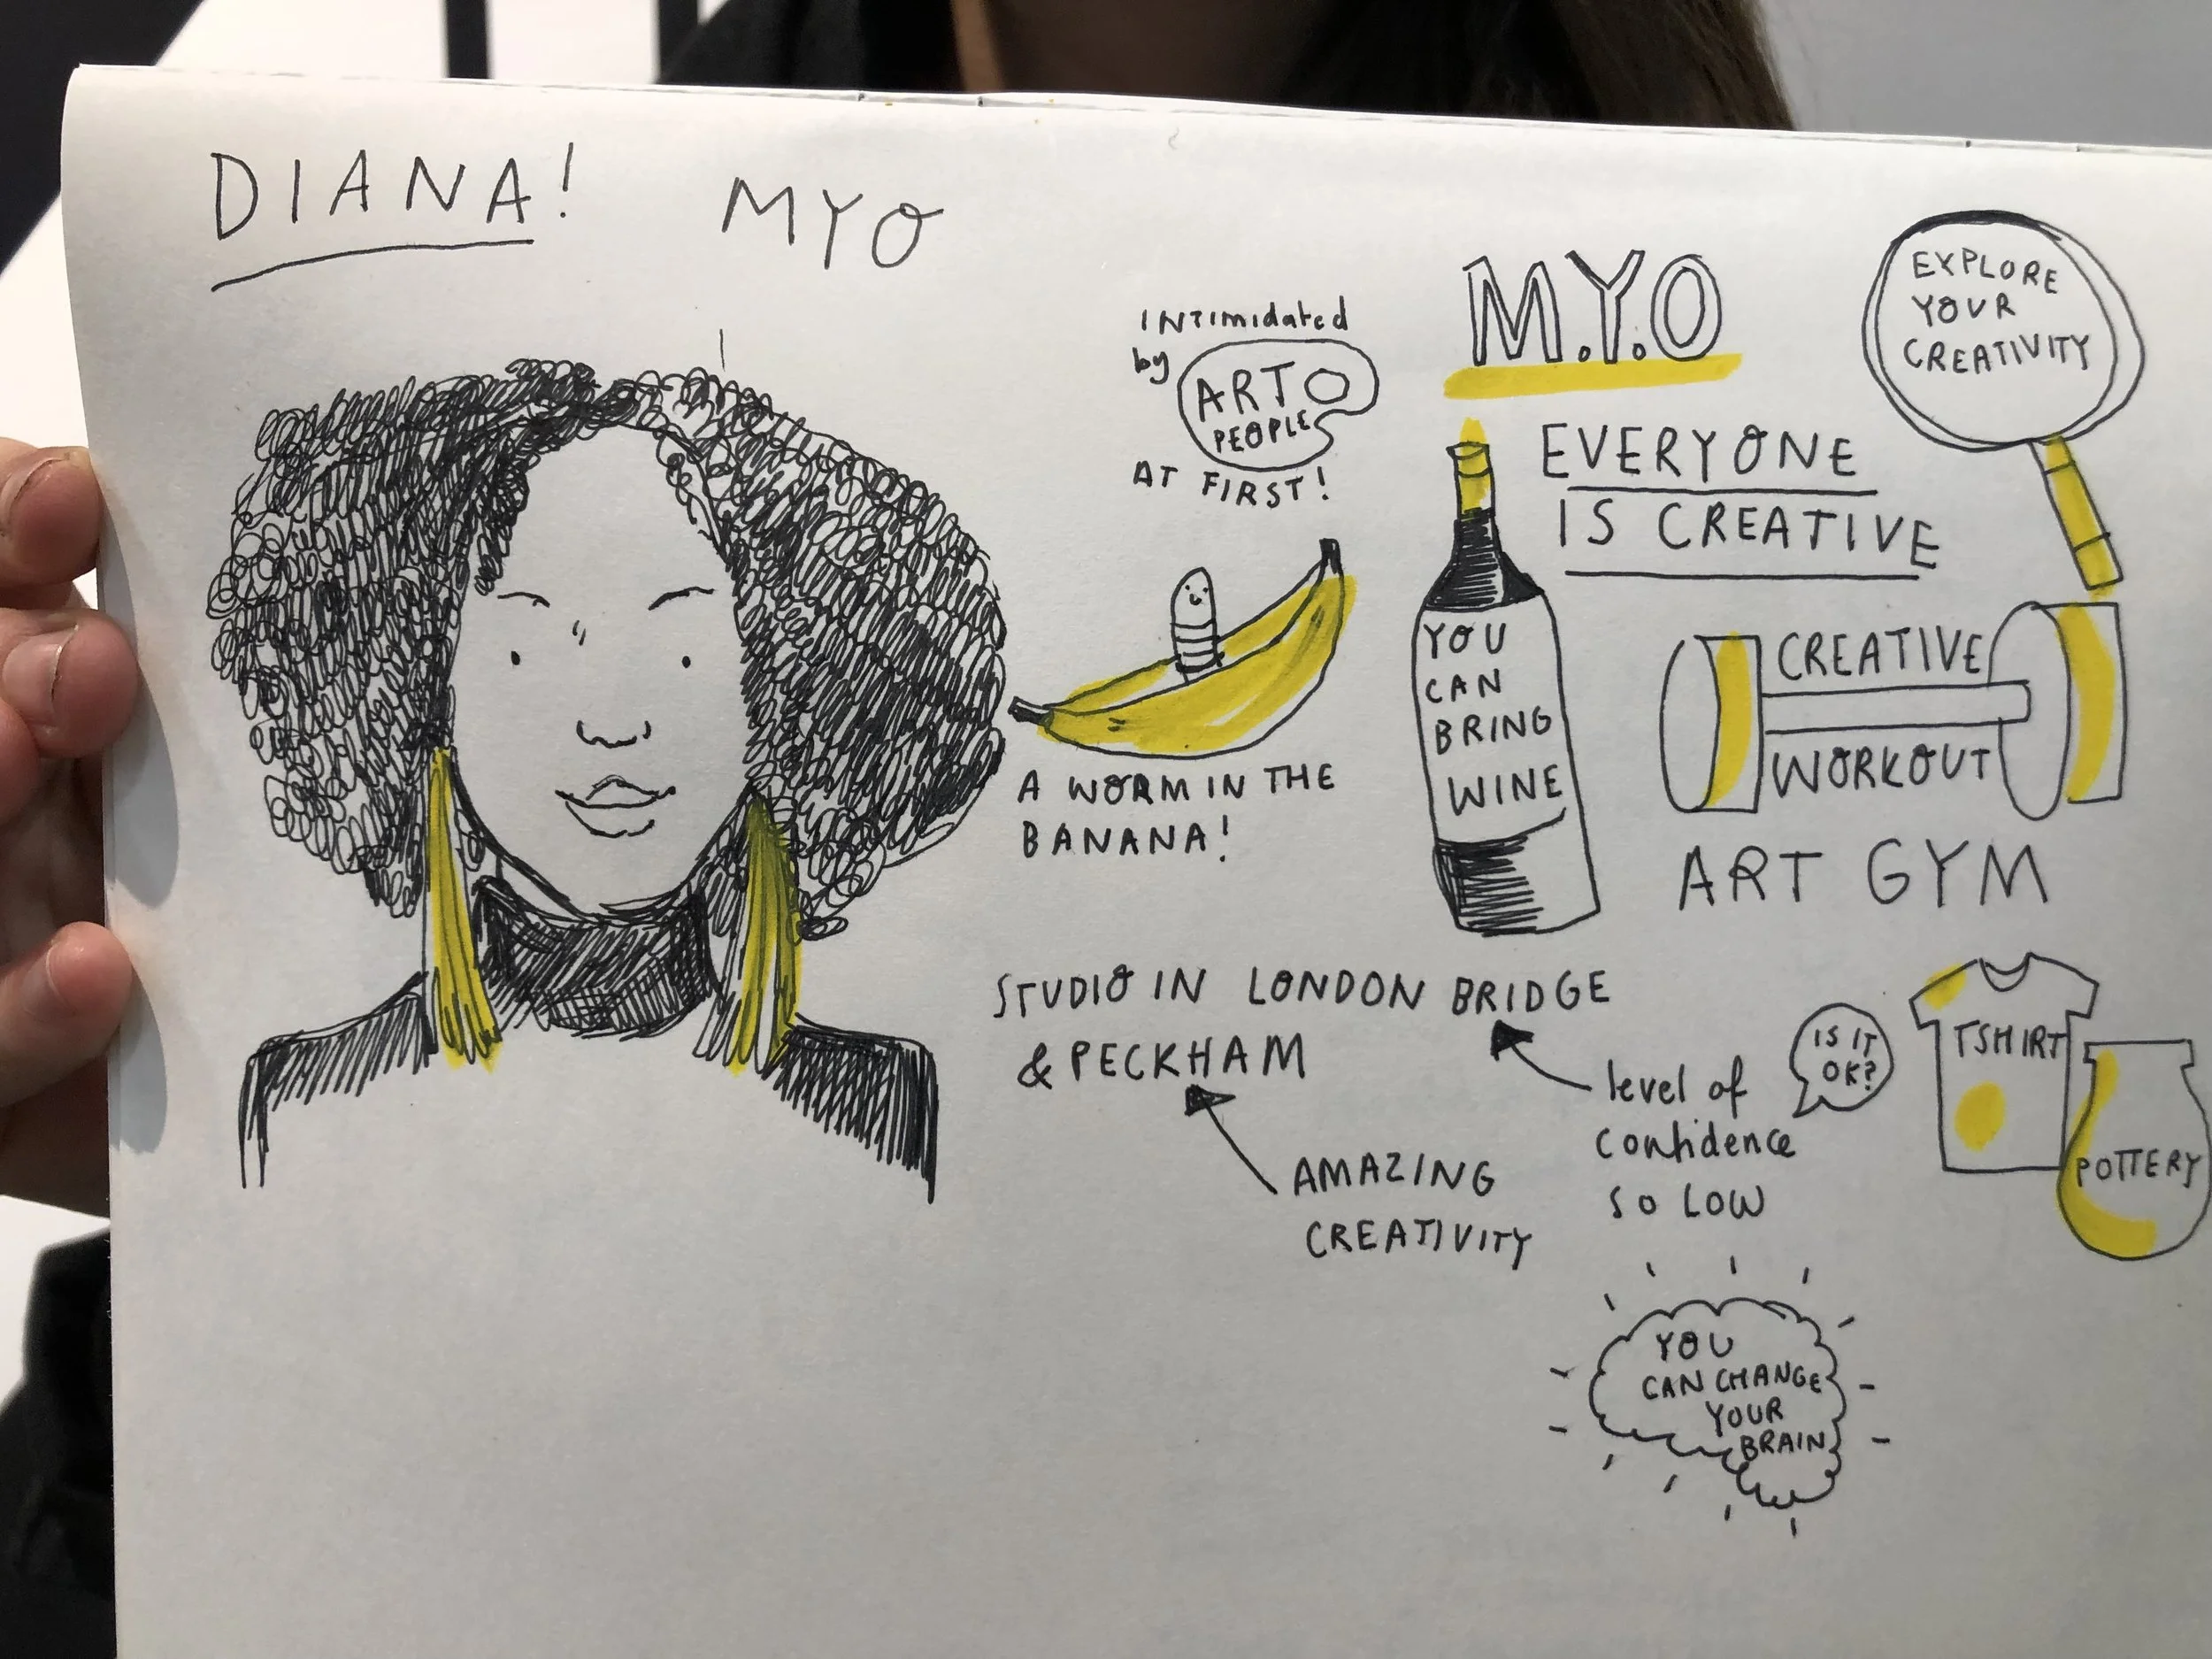 DIANA!
MYO
INTimidated
by
ART
PEOPLE
AT FIRST!
M.Y.O
EXPLORE
YOUR
CREATIVITY
EVERYONE
IS CREATIVE
A WORM IN THE
BANANA!
YOU
CAN
BRING
WINE
CREATIVE
WORKOUT
ART GYM
STUDIO IN LONDON BRIDGE
& PECKHAM
AMAZING
CREATIVITY
level of
confidence
SO LOW
IS IT
OK?
TSHIRT
POTTERY
YOU
CAN CHANGE
YOUR
BRAIN